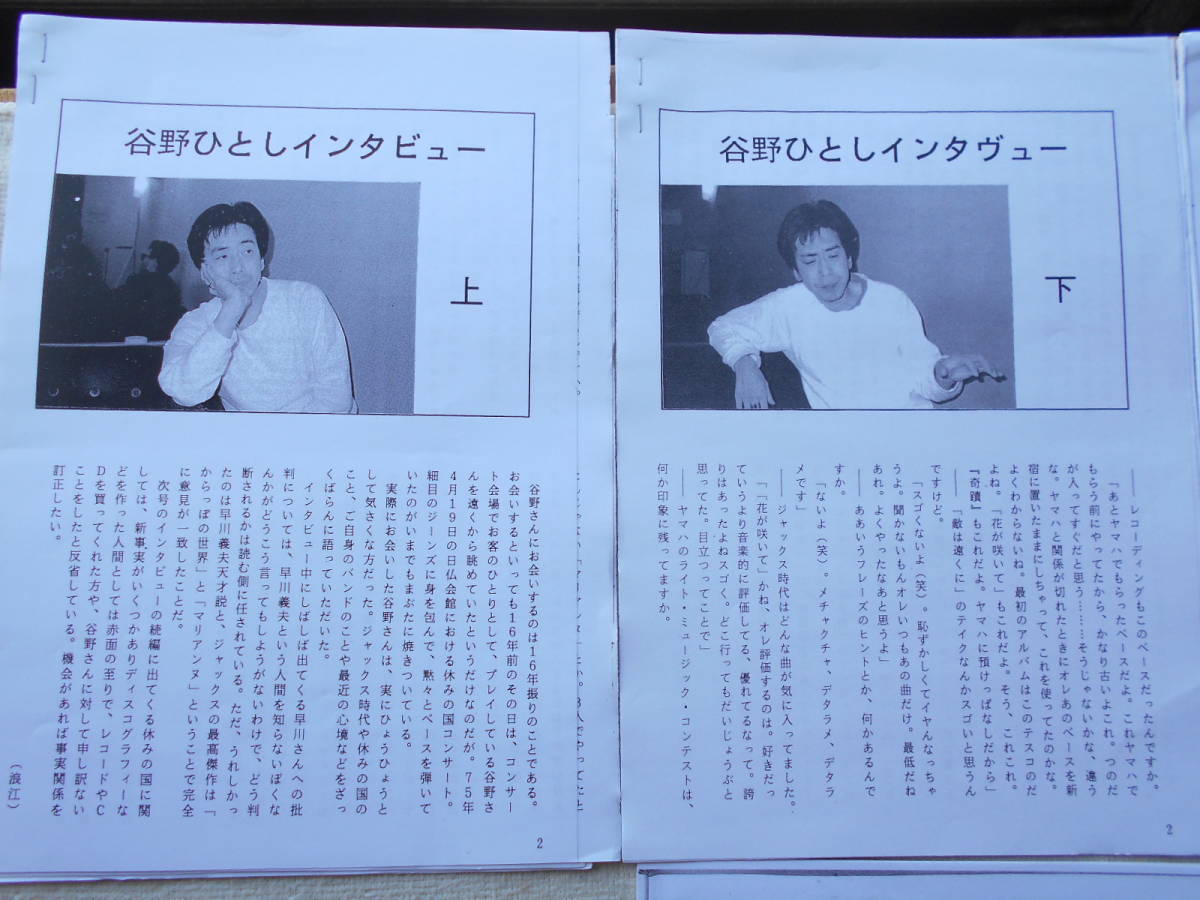 谷野ひとしインタビュー
上
谷野さんにお会いするのは16年振りのことである。
お会いするといっても16年前のその日は、コンサー
ト会場でお客のひとりとして、プレイしている谷野さ
んを遠くから眺めていたというだけなのだが。75年
4月19日の日仏会館における休みの国コンサート。
細目のジーンズに身を包んで、黙々とベースを弾いて
いたのがいまでもまぶたに焼きついている。
実際にお会いした谷野さんは、実にひょうひょうと
して気さくな方だった。ジャックス時代や休みの国の
こと、ご自身のバンドのことや最近の心境などをざっ
くばらんに語っていただいた。
インタビュー中にしばしば出てくる早川さんへの批
判については、早川義夫という人間を知らないぼくな
んかがどうこう言ってもしようがないわけで、どう判
断されるかは読む側に任されている。ただ、うれしかっ
たのは早川義夫天才説と、ジャックスの最高傑作は「
からっぽの世界」と「マリアンヌ」ということで完全
に意見が一致したことだ。
次号のインタビューの続編に出てくる休みの国に関
しては、新事実がいくつかありディスコグラフィーな
どを作った人間としては赤面の至りで、レコードやC
Dを買ってくれた方や、谷野さんに対して申し訳ない
ことをしたと反省している。機会があれば事実関係を
訂正したい。
(浪江)
2
谷野ひとしインタヴュー
下
――レコーディングもこのベースだったんですか。
「あとヤマハでもらったベースだよ。これヤマハで
もらう前にやってたから、かなり古いよこれ。つのだ
が入ってすぐだと思う………そうじゃないかな、違う
な。ヤマハと関係が切れたときにオレあのベースを新
宿に置いたままにしちゃって、これを使ってたのかな。
よくわからないね。最初のアルバムはこのテスコのだ
よね。「花が咲いて」もこれだよ。そう、これこれ。
『奇蹟』もこれだよ。ヤマハに預けっぱなしだから」
――「敵は遠くに」のテイクなんかスゴいと思うん
ですけど。
「スゴくないよ(笑)。恥ずかしくてイヤんなっちゃ
うよ。聞かないもんオレいつもあの曲だけ。最低だね
あれ。よくやったなあと思うよ」
――ああいうフレーズのヒントとか、何かあるんで
すか。
「ないよ(笑)。メチャクチャ、デタラメ、デタラ
メです」
――ジャックス時代はどんな曲が気に入ってました。
「「花が咲いて」かね、オレ評価するのは。好きだっ
ていうより音楽的に評価してる、優れてるなって。誇
りはあったよねスゴく。どこ行ってもだいじょうぶと
思ってた。目立つってことで」
――ヤマハのライト・ミュージック・コンテストは、
何か印象に残ってますか。
2